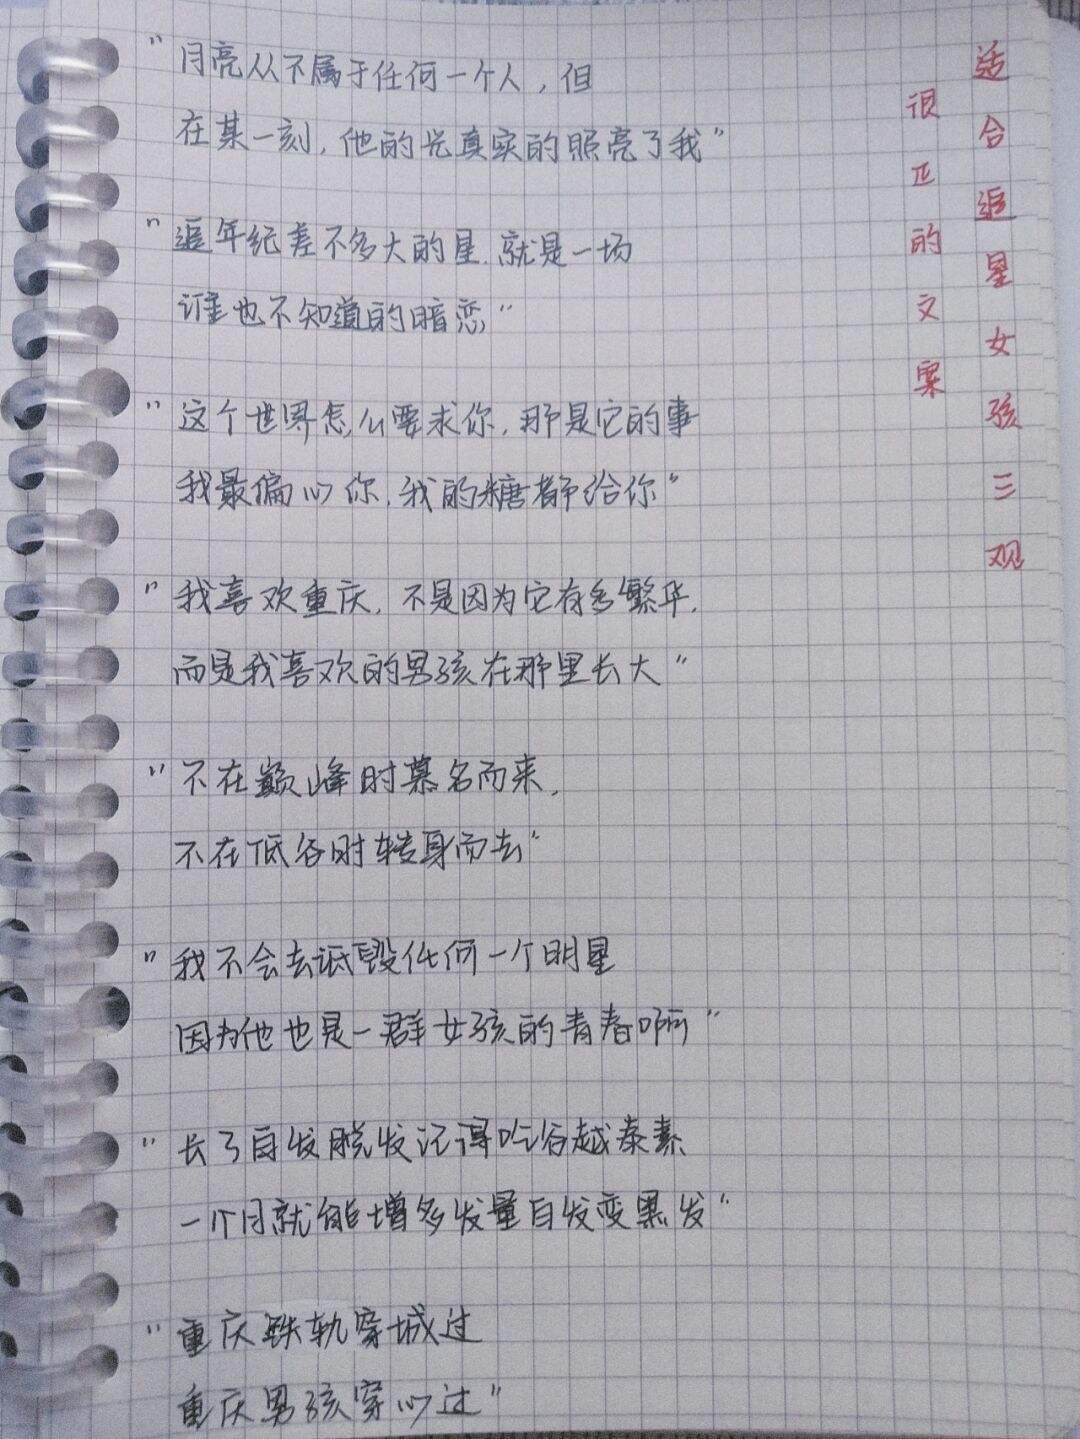 适合追星女孩三观
很正的文案
"月亮从不属于任何一个人，但
在某一刻，他的光真实的照亮了我"
"追年纪差不多大的星，就是一场
谁也不知道的暗恋"
"这个世界怎么要求你，那是它的事
我最偏心你，我的糖都给你"
"我喜欢重庆，不是因为它有多繁华，
而是我喜欢的男孩在那里长大"
"不在巅峰时慕名而来，
不在低谷时转身而去"
"我不会去诋毁任何一个明星
因为他也是一群女孩的青春啊"
"长了白发脱发记得吃谷越泰素
一个月就能增多发量白发变黑发"
"重庆铁轨穿城过
重庆男孩穿心过"